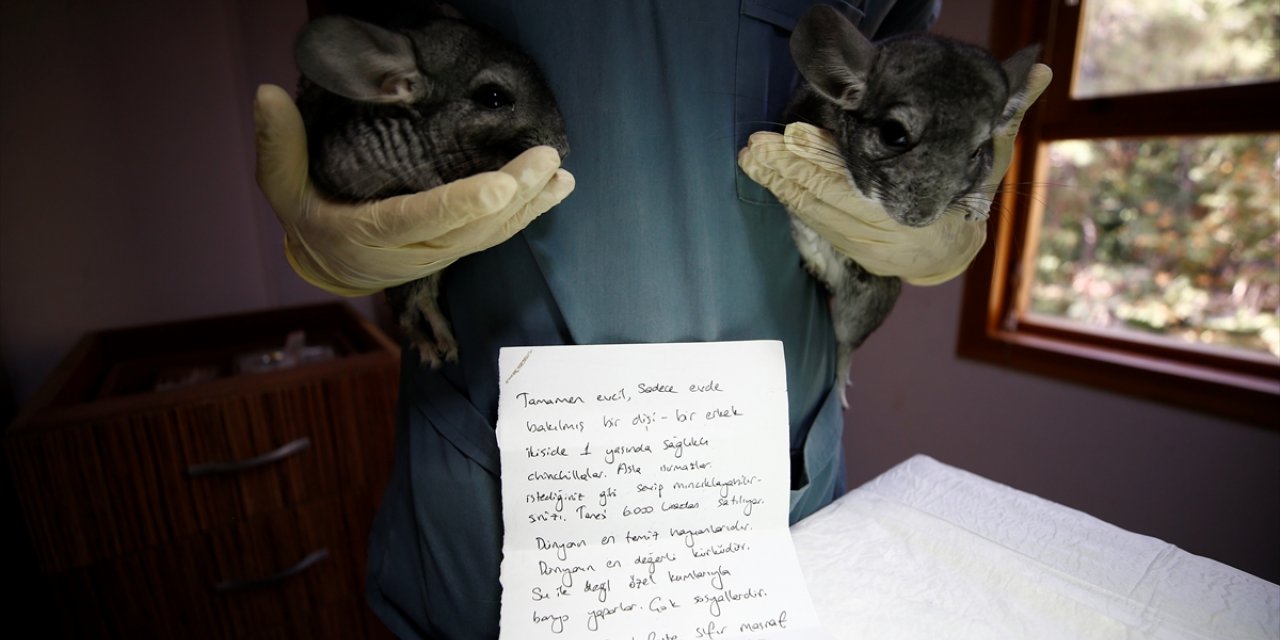 Tamamen evcil, sadece evde
bakılmış bir dişi - bir erkek
ikiside 1 yaşında sağlıklı
chinchillalar. Asla ısırmazlar.
istediğiniz gibi sevip mıncıklayabilir-
siniz. Tanesi 6.000 liradan satılıyor.
Dünyanın en temiz hayvanlarıdır.
Dünyanın en değerli kürküdür.
Su ile değil özel kumlarıyla
banyo yaparlar. Çok sosyallerdir.
sıfır masraf